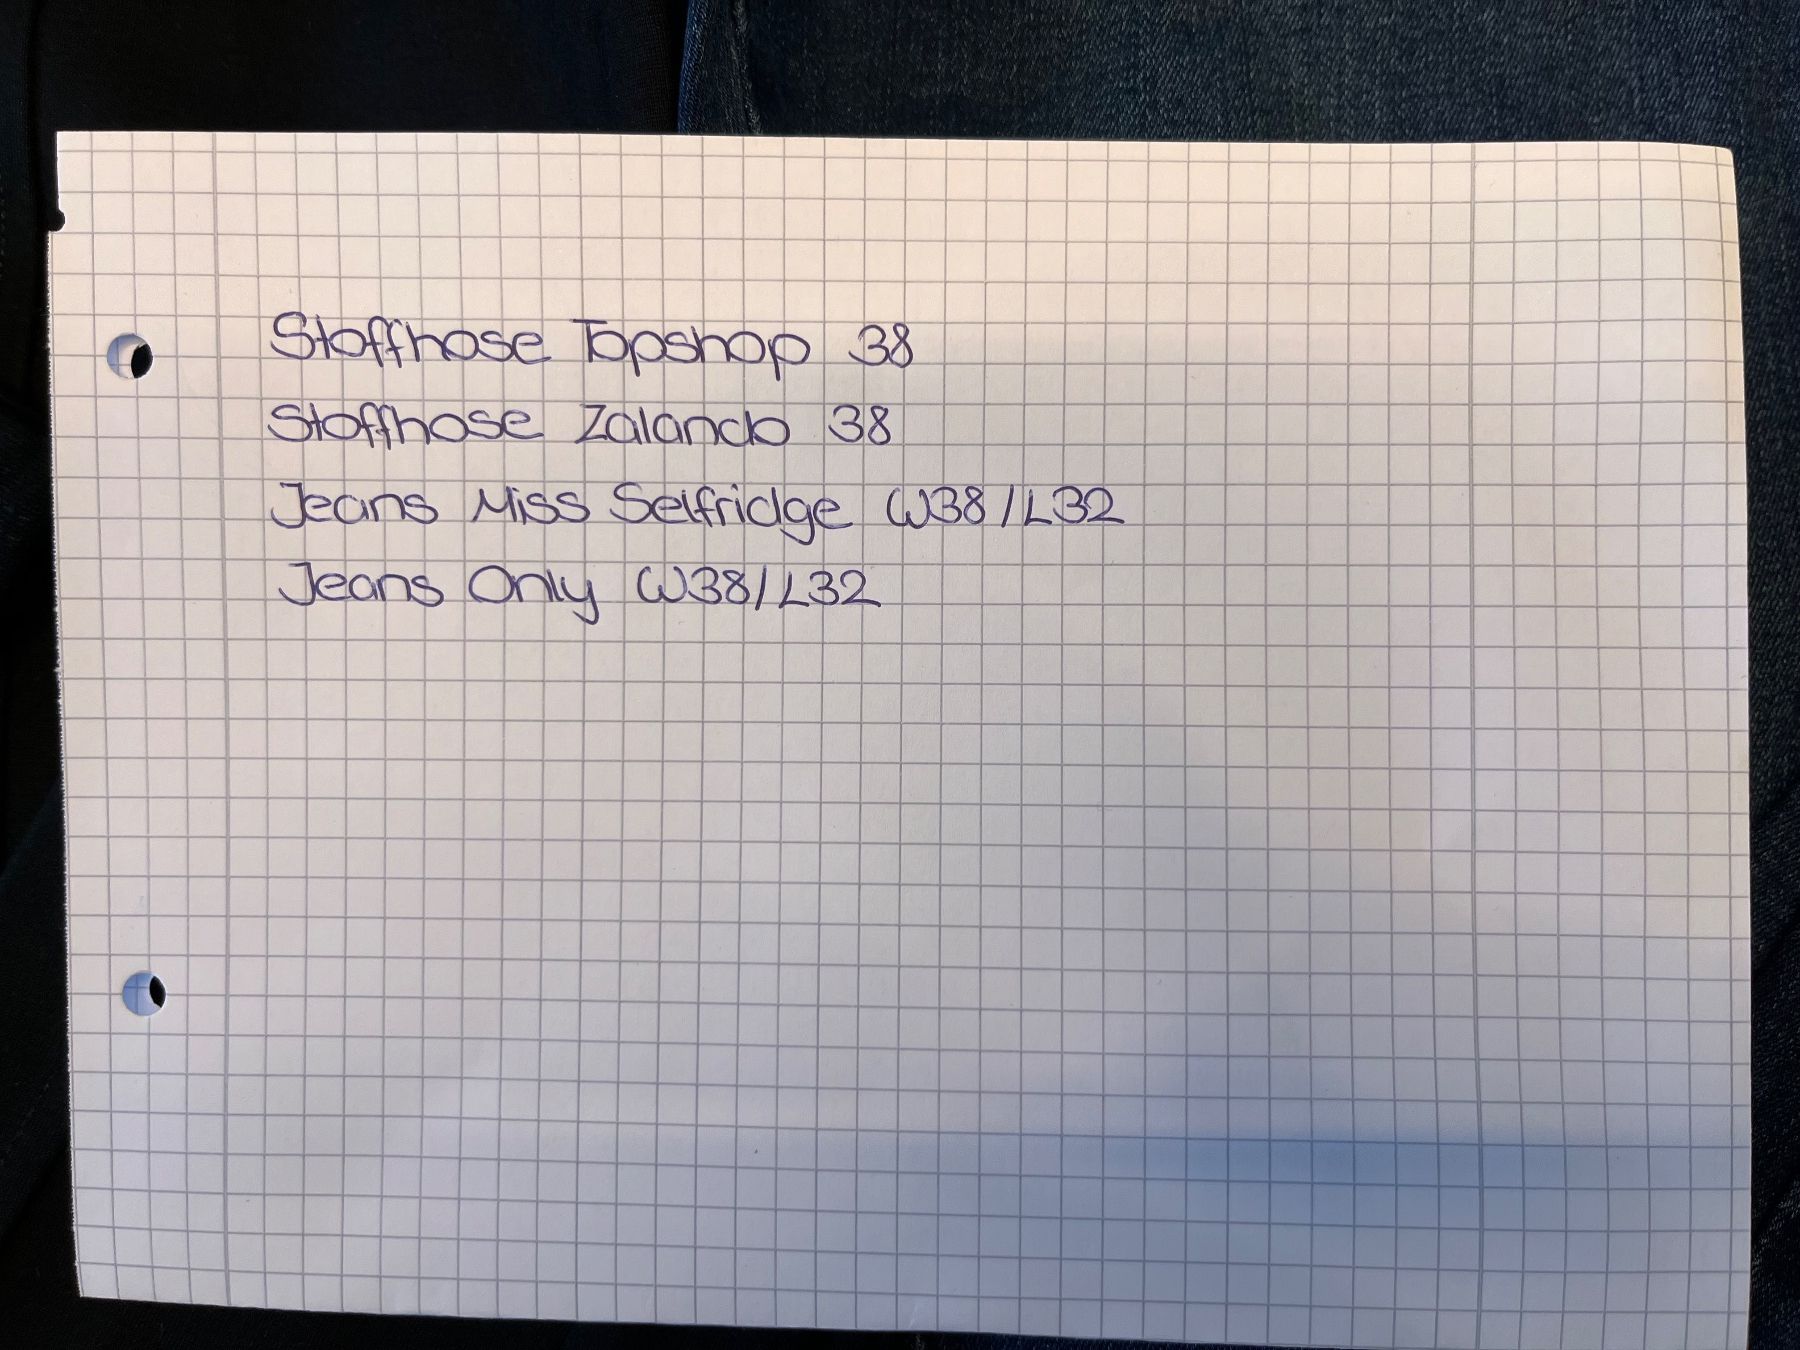 Stoffhose Topshop 38
Stoffhose Zalando 38
Jeans Miss Selfridge W38/L32
Jeans Only W38/L32